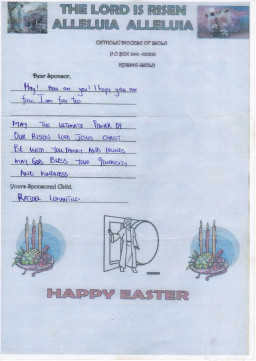 THE LORD IS RISEN
ALLELUIA ALLELUIA
CATHOLIC DIOCESE OF
P.O BOX
Dear Sponsor,
Hey! How are you? I hope you are
fine. I am fine too.
MAY THE ULTIMATE POWER OF
OUR RISEN LORD JESUS CHRIST
BE WITH YOU, FAMILY AND FRIENDS
MAY GOD BLESS YOUR GENEROSITY
AND KINDNESS
Yours Sponsored Child,
HAPPY EASTER